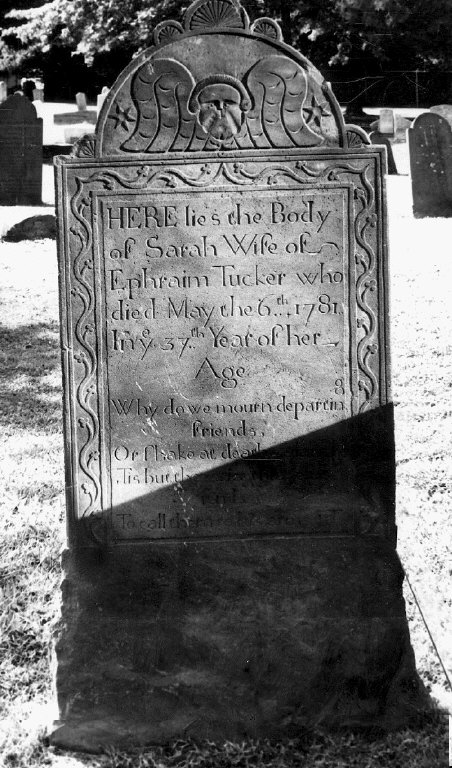 HERE lies the Body
of Sarah Wife of
Ephraim Tucker who
died May the 6.th, 1781.
In ye. 37.th Year of her
Age
Why do we mourn departing
friends,
Or shake at death
Tis but the
To call them